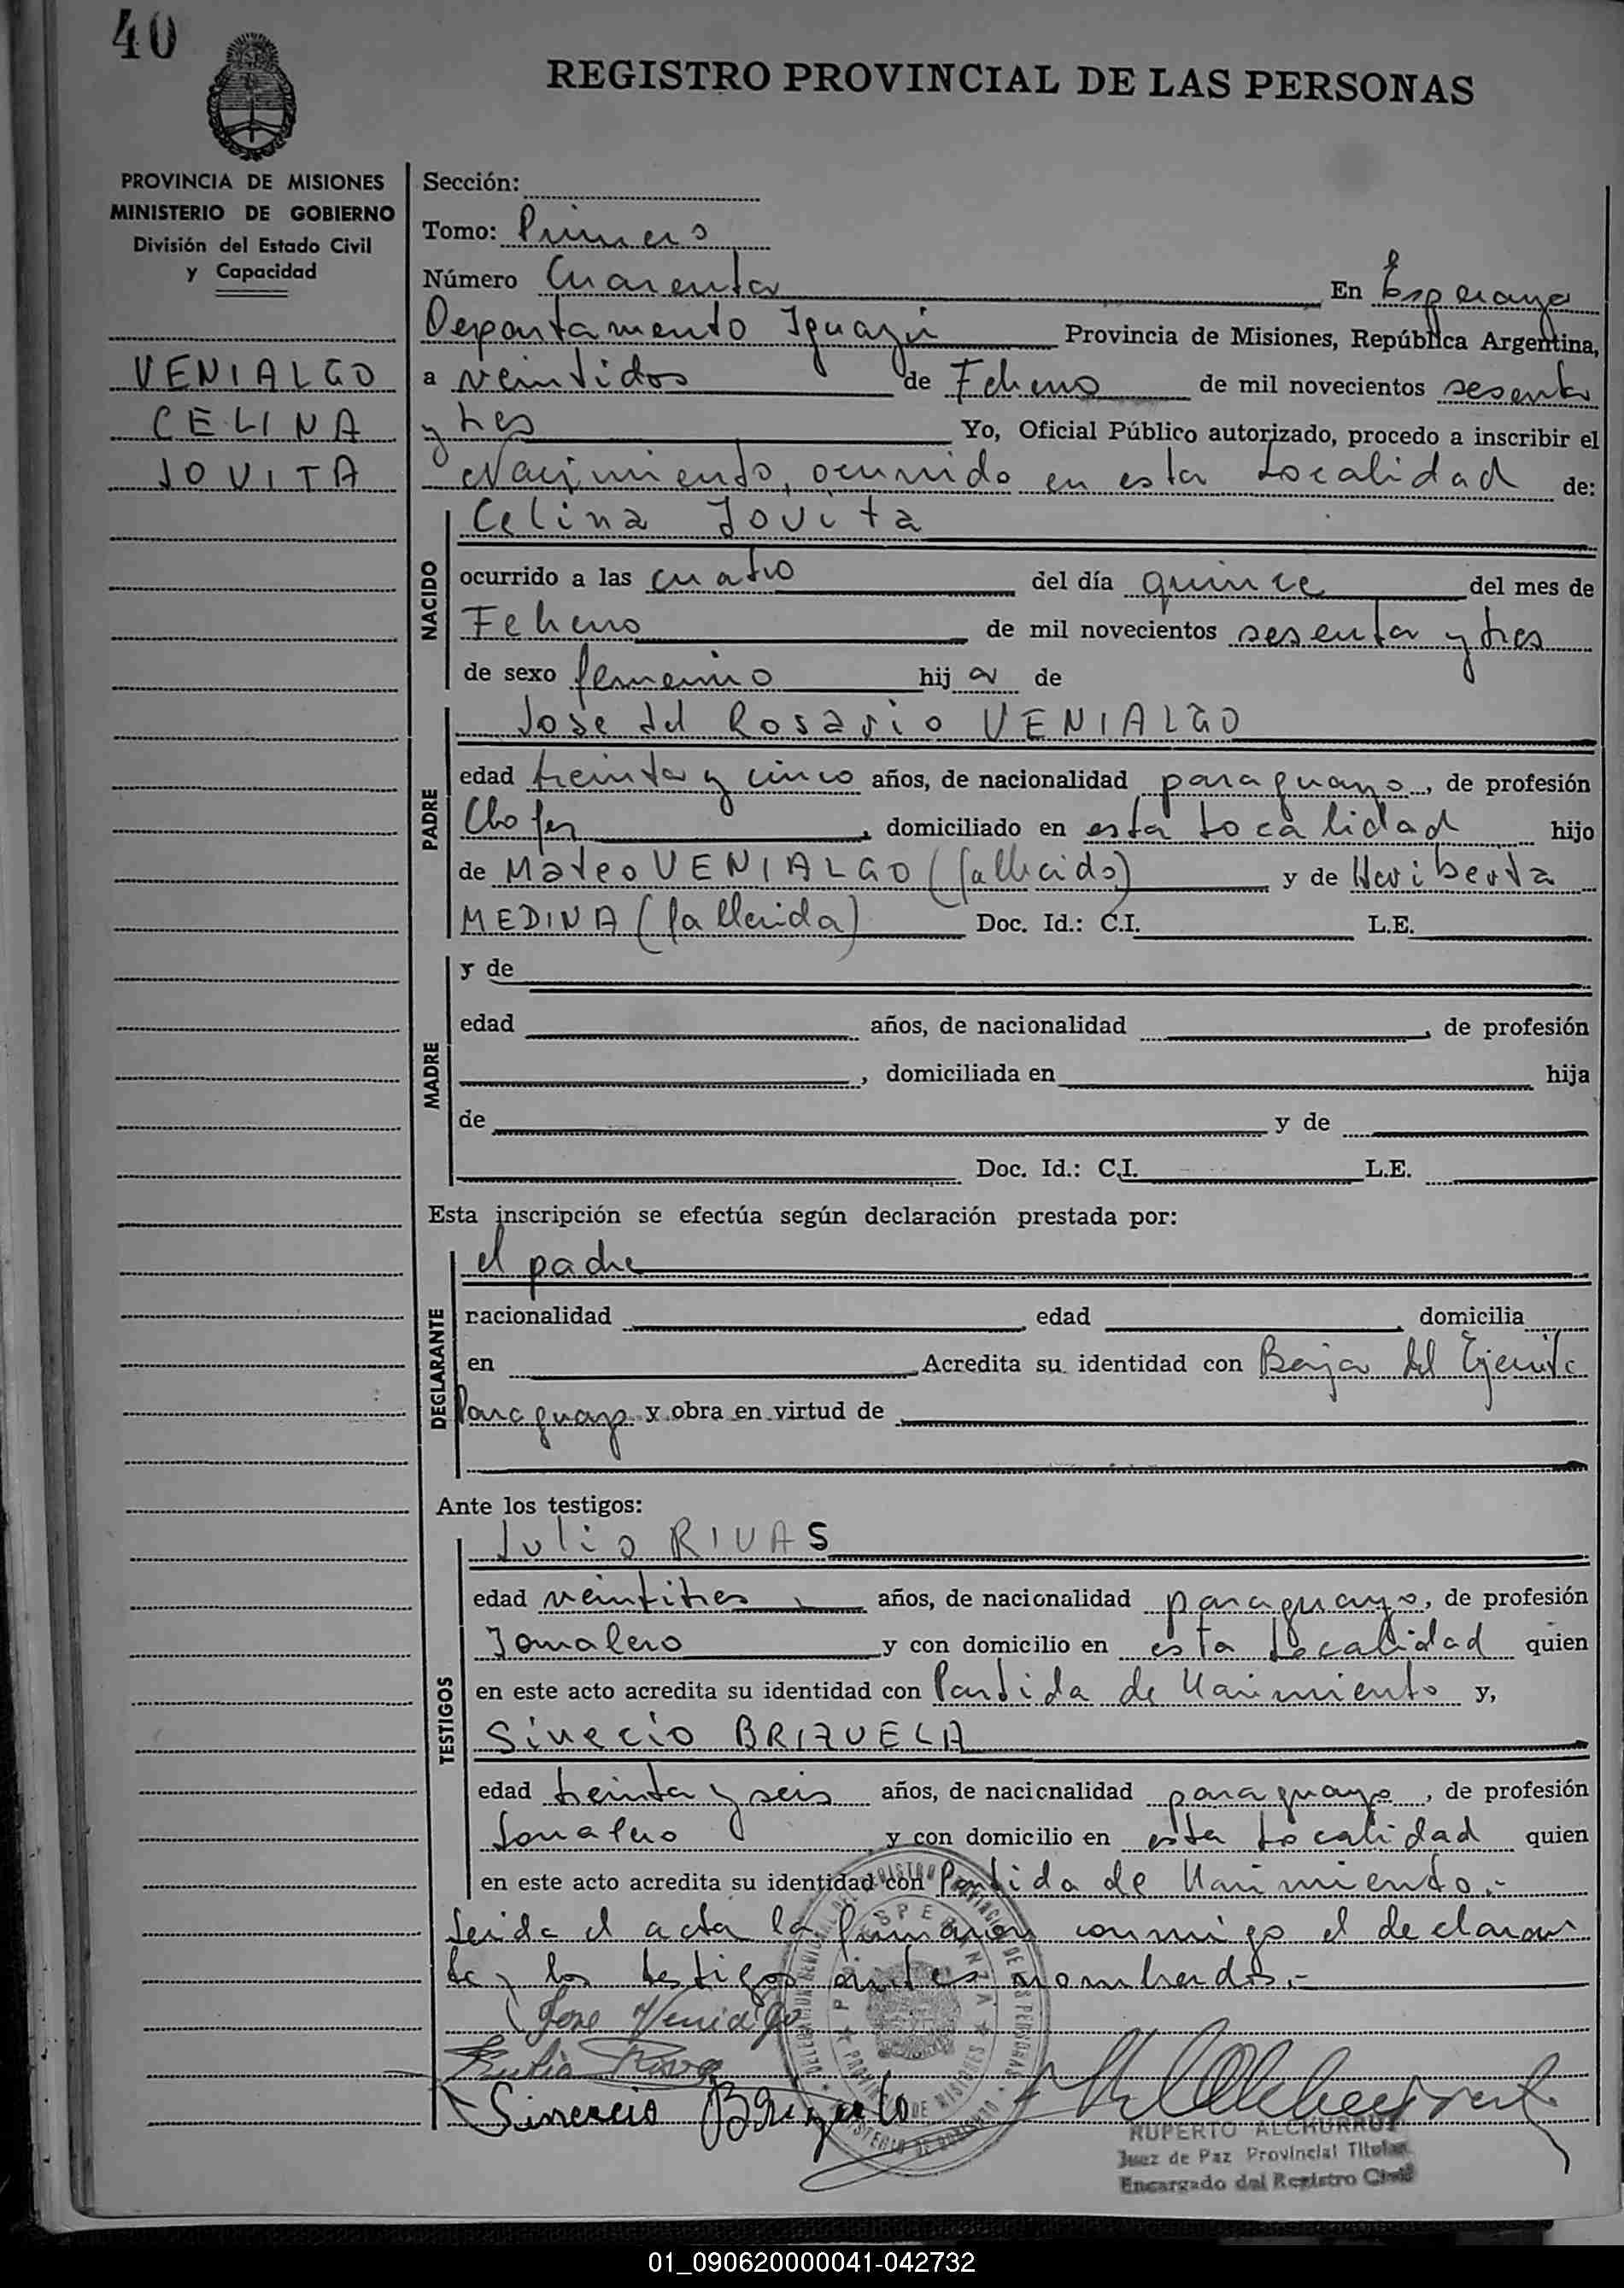 40
REGISTRO PROVINCIAL DE LAS PERSONAS
PROVINCIA DE MISIONES
MINISTERIO DE GOBIERNO
División del Estado Civil
y Capacidad
VENIALGO
CELINA
JOVITA
Sección:
Tomo: Primero
Número Cuarenta En Esperanza
Departamento Iguazú Provincia de Misiones, República Argentina,
a veintidos de Febrero de mil novecientos sesenta
y tres Yo, Oficial Público autorizado, procedo a inscribir el
Nacimiento, ocurrido en esta Localidad de:
NACIDO
Celina Jovita
ocurrido a las cuatro del día quince del mes de
Febrero de mil novecientos sesenta y tres
de sexo femenino hij a de
PADRE
José del Rosario VENIALGO
edad treinta y cinco años, de nacionalidad paraguayo, de profesión
Chofer, domiciliado en esta Localidad hijo
de Mateo VENIALGO (fallecido) y de Heriberta
MEDINA (fallecida) Doc. Id.: C.I. L.E.
MADRE
y de
edad años, de nacionalidad , de profesión
, domiciliada en hija
de y de
Doc. Id.: C.I. L.E.
Esta inscripción se efectúa según declaración prestada por:
DECLARANTE
el padre
racionalidad edad domicilia
en Acredita su identidad con Baja del Ejercito
Paraguayo y obra en virtud de
Ante los testigos:
TESTIGOS
Julio RIVAS
edad veintitres años, de nacionalidad paraguayo, de profesión
Jornalero y con domicilio en esta Localidad quien
en este acto acredita su identidad con Partida de Nacimiento y,
Sinecio BRIZUELA
edad treinta y seis años, de nacicnalidad paraguayo, de profesión
Jornalero y con domicilio en esta Localidad quien
en este acto acredita su identidad con Partida de Nacimiento.-
Leida el acta la firmaron conmigo el declaran
te y los testigos antes nombrados.-
Jose Venialgo
Julio Rivas
Sinesecio Brizuela
RUPERTO ALCHURRUT
Juez de Paz Provincial Titular
Encargado del Registro Civil
01_090620000041-042732